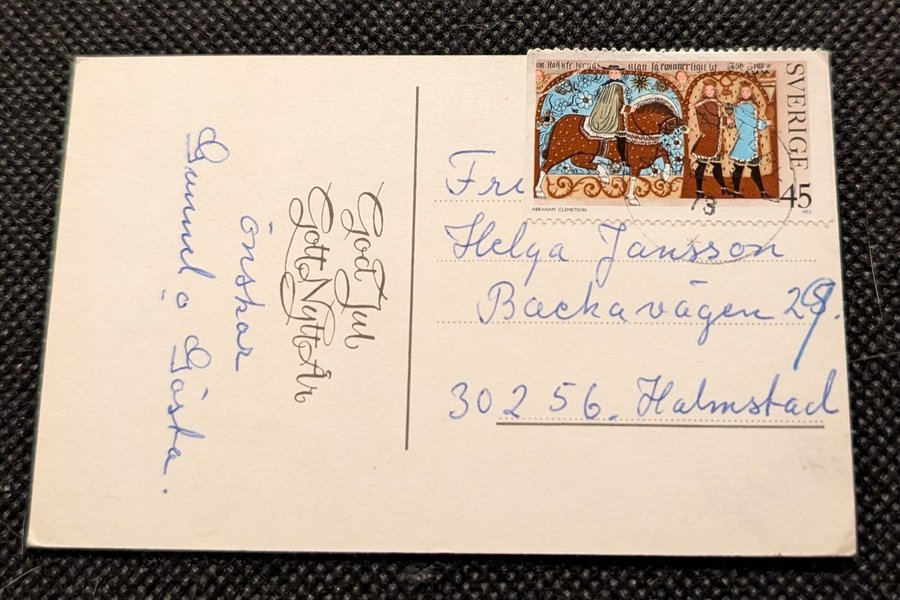 God Jul
Gott Nytt År
önskar
Gunnel o Gösta.
SVERIGE
45
ABRAHAM CLEMETSON
1973
Helga Jansson
Backavägen
302 56. Halmstad